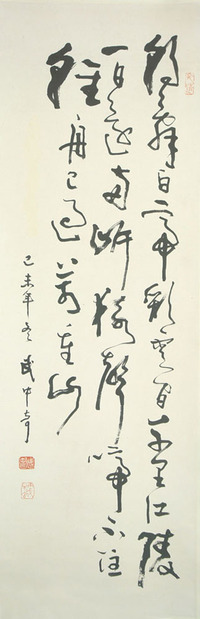 朝辭白帝彩雲間千里江陵
一日還兩岸猿聲啼不住
輕舟已過萬重山
己未年冬武中奇